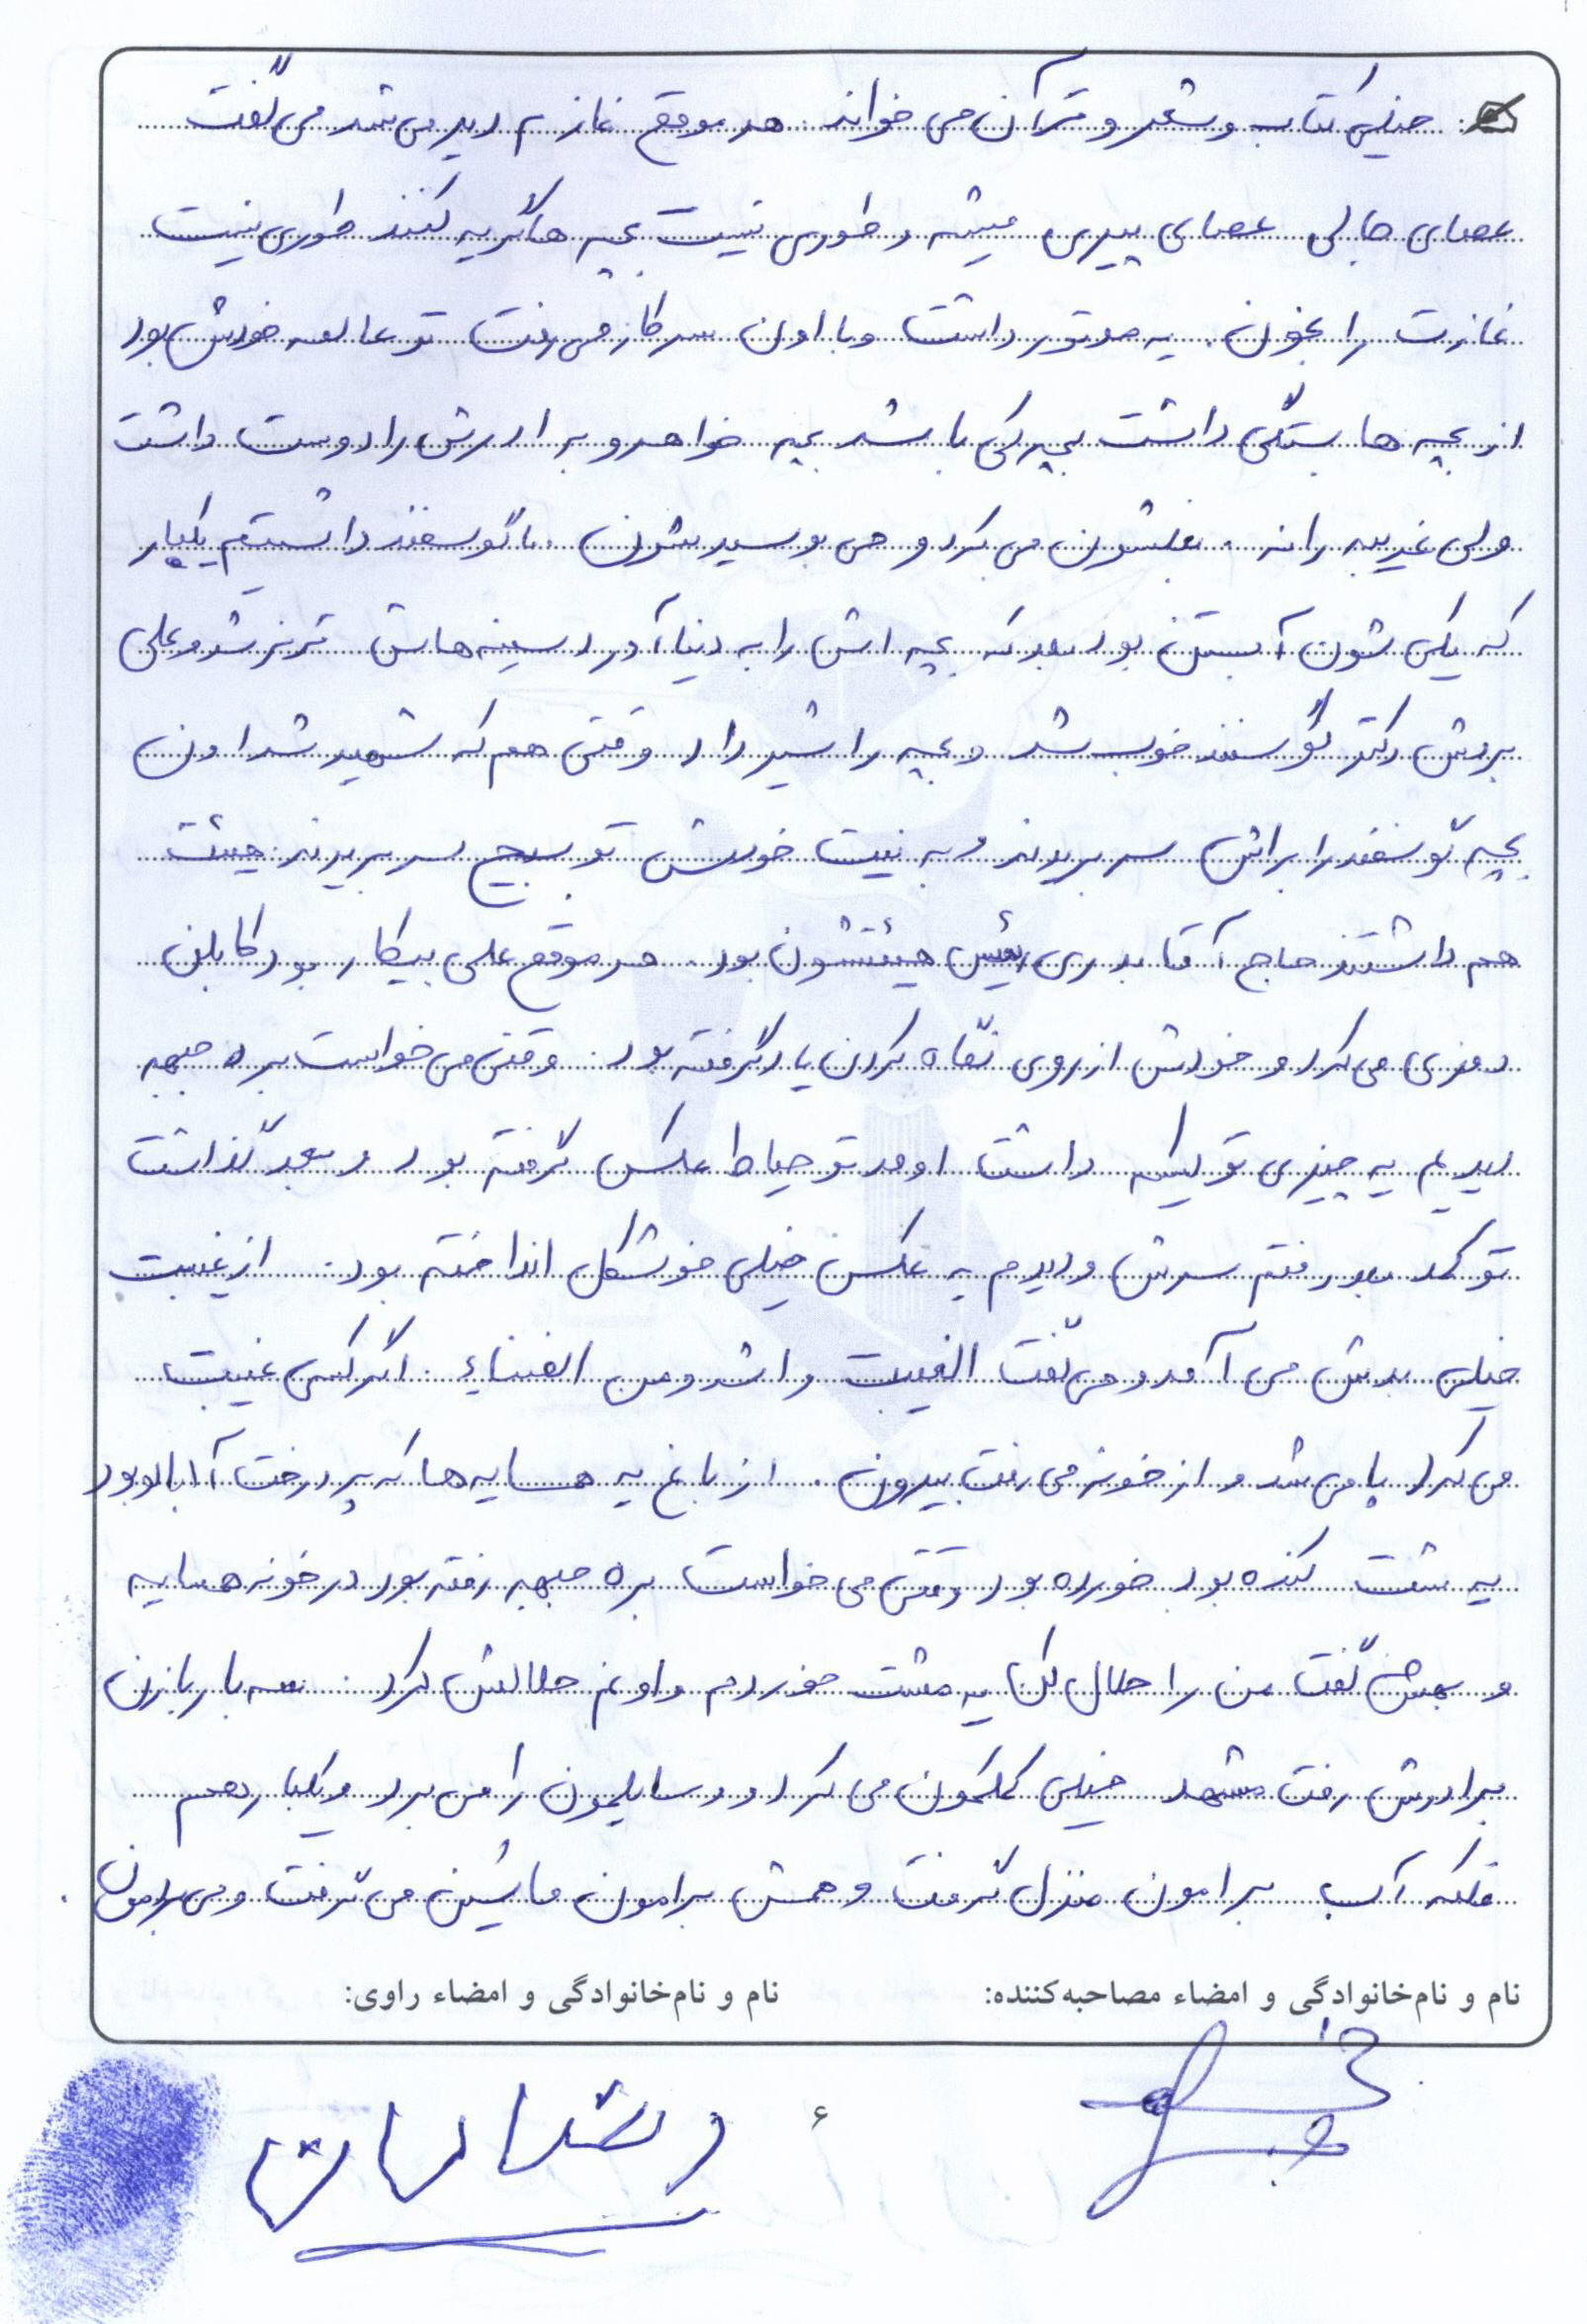 خیلی کتاب و شعر و قرآن می خواند. هر موقع نمازم دیر می شد می گفت
عصای جالی عصای پیری میشه و طوری نیست بچه ها گریه کنند طوری نیست
نمازت را بخون. یه موتور داشت و با اون سر کار می رفت تو عالم خودش بود
از بچه ها بستگی داشت بچه کی باشد بچه خواهر و برادرش را دوست داشت
ولی غریبه را نه. بغلشون می کرد و می بوسیدشون. ما گوسفند داشتیم یکبار
که یکی شون آبستن بود بعد که بچه اش را به دنیا آورد سینه هاش قرمز شد و علی
بردش دکتر گوسفند خوب شد و بچه را شیر داد وقتی هم که شهید شد اون
بچه گوسفند را براش سر بریدند و به نیت خودش تو بسیج سر بریدند. هیئت
هم داشتند حاج آقا بدری رئیس هیئتشون بود. هر موقع علی بیکار بود کابلن
دوزی می کرد و خودش از روی نگاه کردن یاد گرفته بود. وقتی می خواست بره جبهه
دیدیم یه چیزی تو کیسه داشت اومد تو حیاط عکس گرفته بود و بعد گذاشت
تو کمد بعد رفتم سرش و دیدم یه عکس خیلی خوشگل انداخته بود. از غیبت
خیلی بدش می آمد و می گفت الغیبت و اشد و من الفناء. اگر کسی غیبت
می کرد پا می شد و از خونه می رفت بیرون. از باغ یه همسایه ها که پر درخت آلبالو بود
یه مشت کنده بود خورده بود وقتی می خواست بره جبهه رفته بود در خونه همسایه
و بهش گفت من را حلال کن یه مشت خوردم و اونم حلالش کرد. سه بار با زن
برادرش رفت مشهد خیلی کمکمون می کرد و وسایلمون را می برد و یکبار هم
فلکه آب برامون منزل گرفت و همش برامون ماشین می گرفت و می بردمون.
نام و نام‌خانوادگی و امضاء مصاحبه‌کننده: نام و نام‌خانوادگی و امضاء راوی:
۶